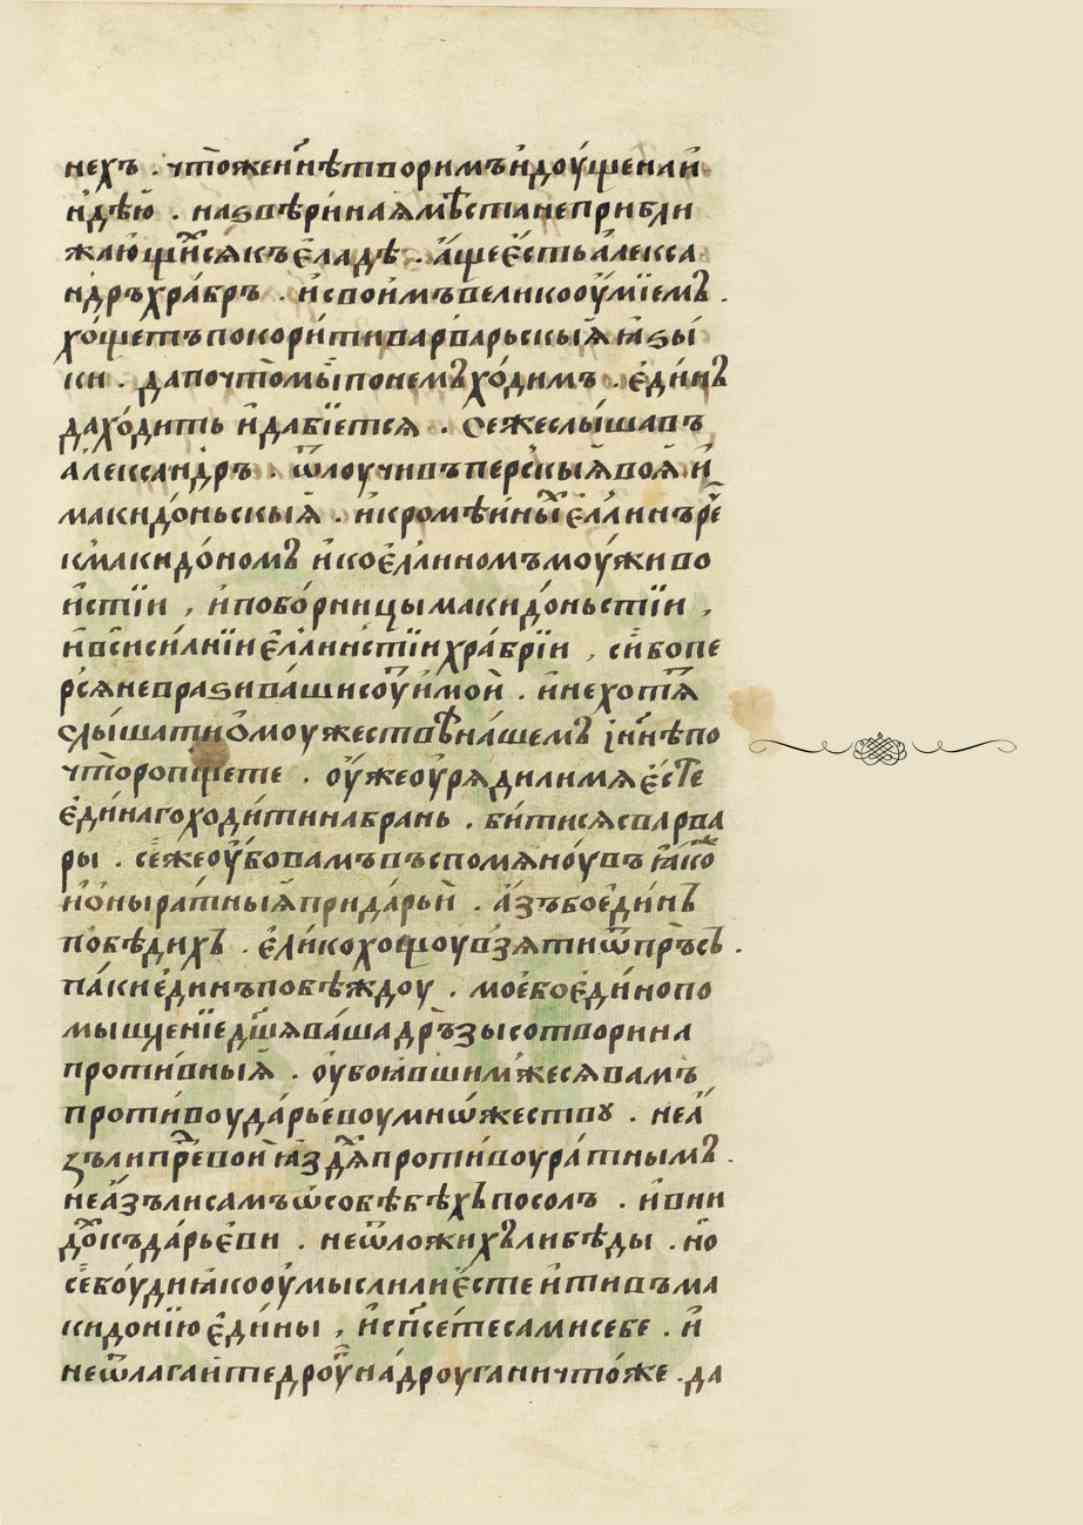 нехъ . что̑же нн҃ѣ творимъ и҆доу́ще на и҆
ндѣю̀ . на ѕвѣри́наѧ мѣ̑ста не прибли
жаю́щи̑сѧ къ є҆ладѣ . а҆́ще є҆́сть а҆лекса
ндръ хра́бръ . и҆ свои́мъ велико оу҆́мїемъ .
хо́щетъ покори́ти варва́рьскыѧ̀ ꙗ҆ѕы́
ки . да почто̑ мы̀ по немъ хо́димъ . є҆ди́нъ
да хо́дить и҆ да бїе́тсѧ . се же слы́шавъ
а҆леѯандръ . ѿлоучивъ перскыѧ̀ воѧ̀ и҆
макидо́ньскыѧ̀ . и҆ кромѣ и҆ны̑ є҆́ллинъ ре҇
к макидо́номъ и҆ ко є҆́ллиномъ моу́жи во
и҆стїи , и҆ побо́рници макидо́ньстїи ,
и҆ вси си́лнїи є҆́ллинстїи хра́брїи , сїи̑ бо пе
рсѧ не враѕи ва́ши соу̑ и҆ мои̑ . и҆ не хотѧ̑
слы́шати ѻ҆ моужествѣ̑ на́шемъ і҆ нн҃ѣ по
что̑ ропщете . оу҆́же оу҆рѧдили мѧ є҆́сте
є҆ди́наго ходи́ти на брань . би́тисѧ с варва
ры . се́ же оу҆́бо вамъ въспомѧноу́въ ꙗ҆ко̑
и҆ ѻ҆ны ра́тныѧ̀ при да́рьи̑ . а҆́зъ бо є҆ди́нъ
побѣдихъ . є҆ли́ко хощоу взѧти ѿ пръ̑съ .
па́ки є҆динъ побѣждоу . мое́ бо є҆ди́но по
мышленїе дш҃ѧ ва́ша дръ̑зы сотвори на
проти́вныѧ̀ . оу҆боꙗ́вшим же сѧ вамъ
проти́воу да́рьевоу мнѡ́жествꙋ . не а҆́
зъ ли пре̑ вои̑ ꙗ҆зд́ѧ проти́воу ра́тнымъ .
не а҆́зъ ли самъ ѡ҆ собѣ бѣхъ посолъ . и҆ вни
до̑х къ да́рьєви . не ѿложихъ ли бѣды . но
се́ боу́ди ꙗ҆ко оу҆мыслили є҆́сте и҆ти въ ма
кидонїю є҆ди́ны , и҆ сп҃се́те сами себе . и҆
не ѿлагаи́те дроу̑ на́ дроуга ничто́же . да